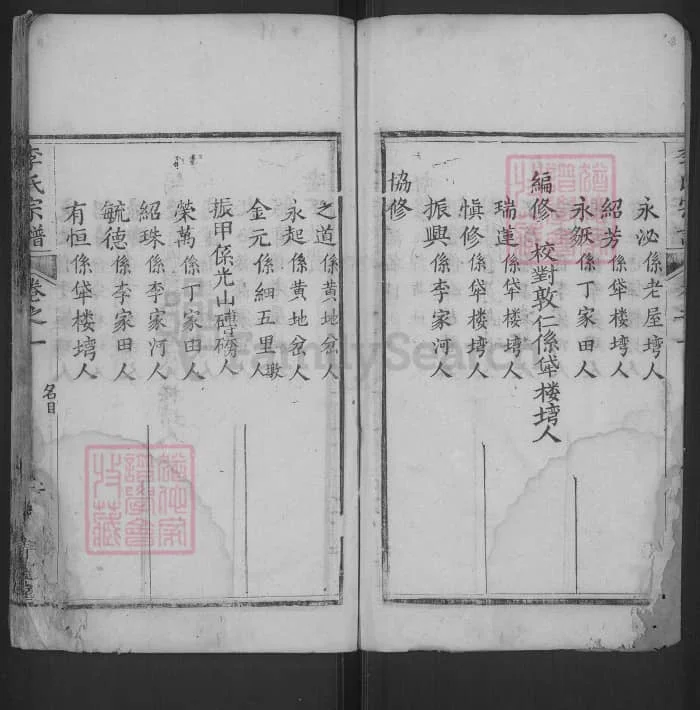 永泌係老屋塆人
紹芳係垈楼塆人
永鏃係丁家田人
編修 校對敦仁係垈楼塆人
瑞蓮係垈楼塆人
愼修係垈楼塆人
振興係李家河人
協修
之道係黄地岔人
永起係黄地岔人
金元係細五里墩人
振甲係光山磚磅人
榮萬係丁家田人
紹珠係李家河人
毓德係李家田人
有恒係垈楼塆人
李氏宗譜 卷之一 名目
FamilySearch